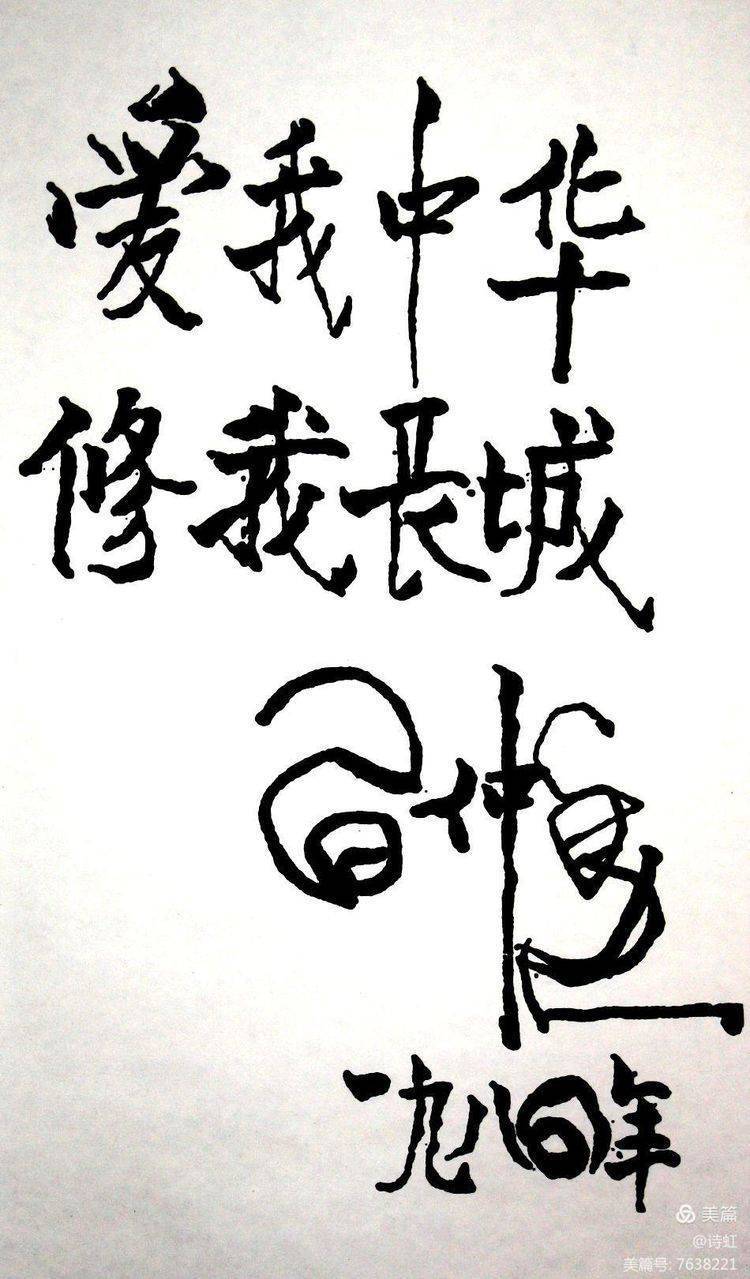 爱我中华
修我長城
習仲勛
一九八四年
美篇
@诗虹
美篇号: 7638221